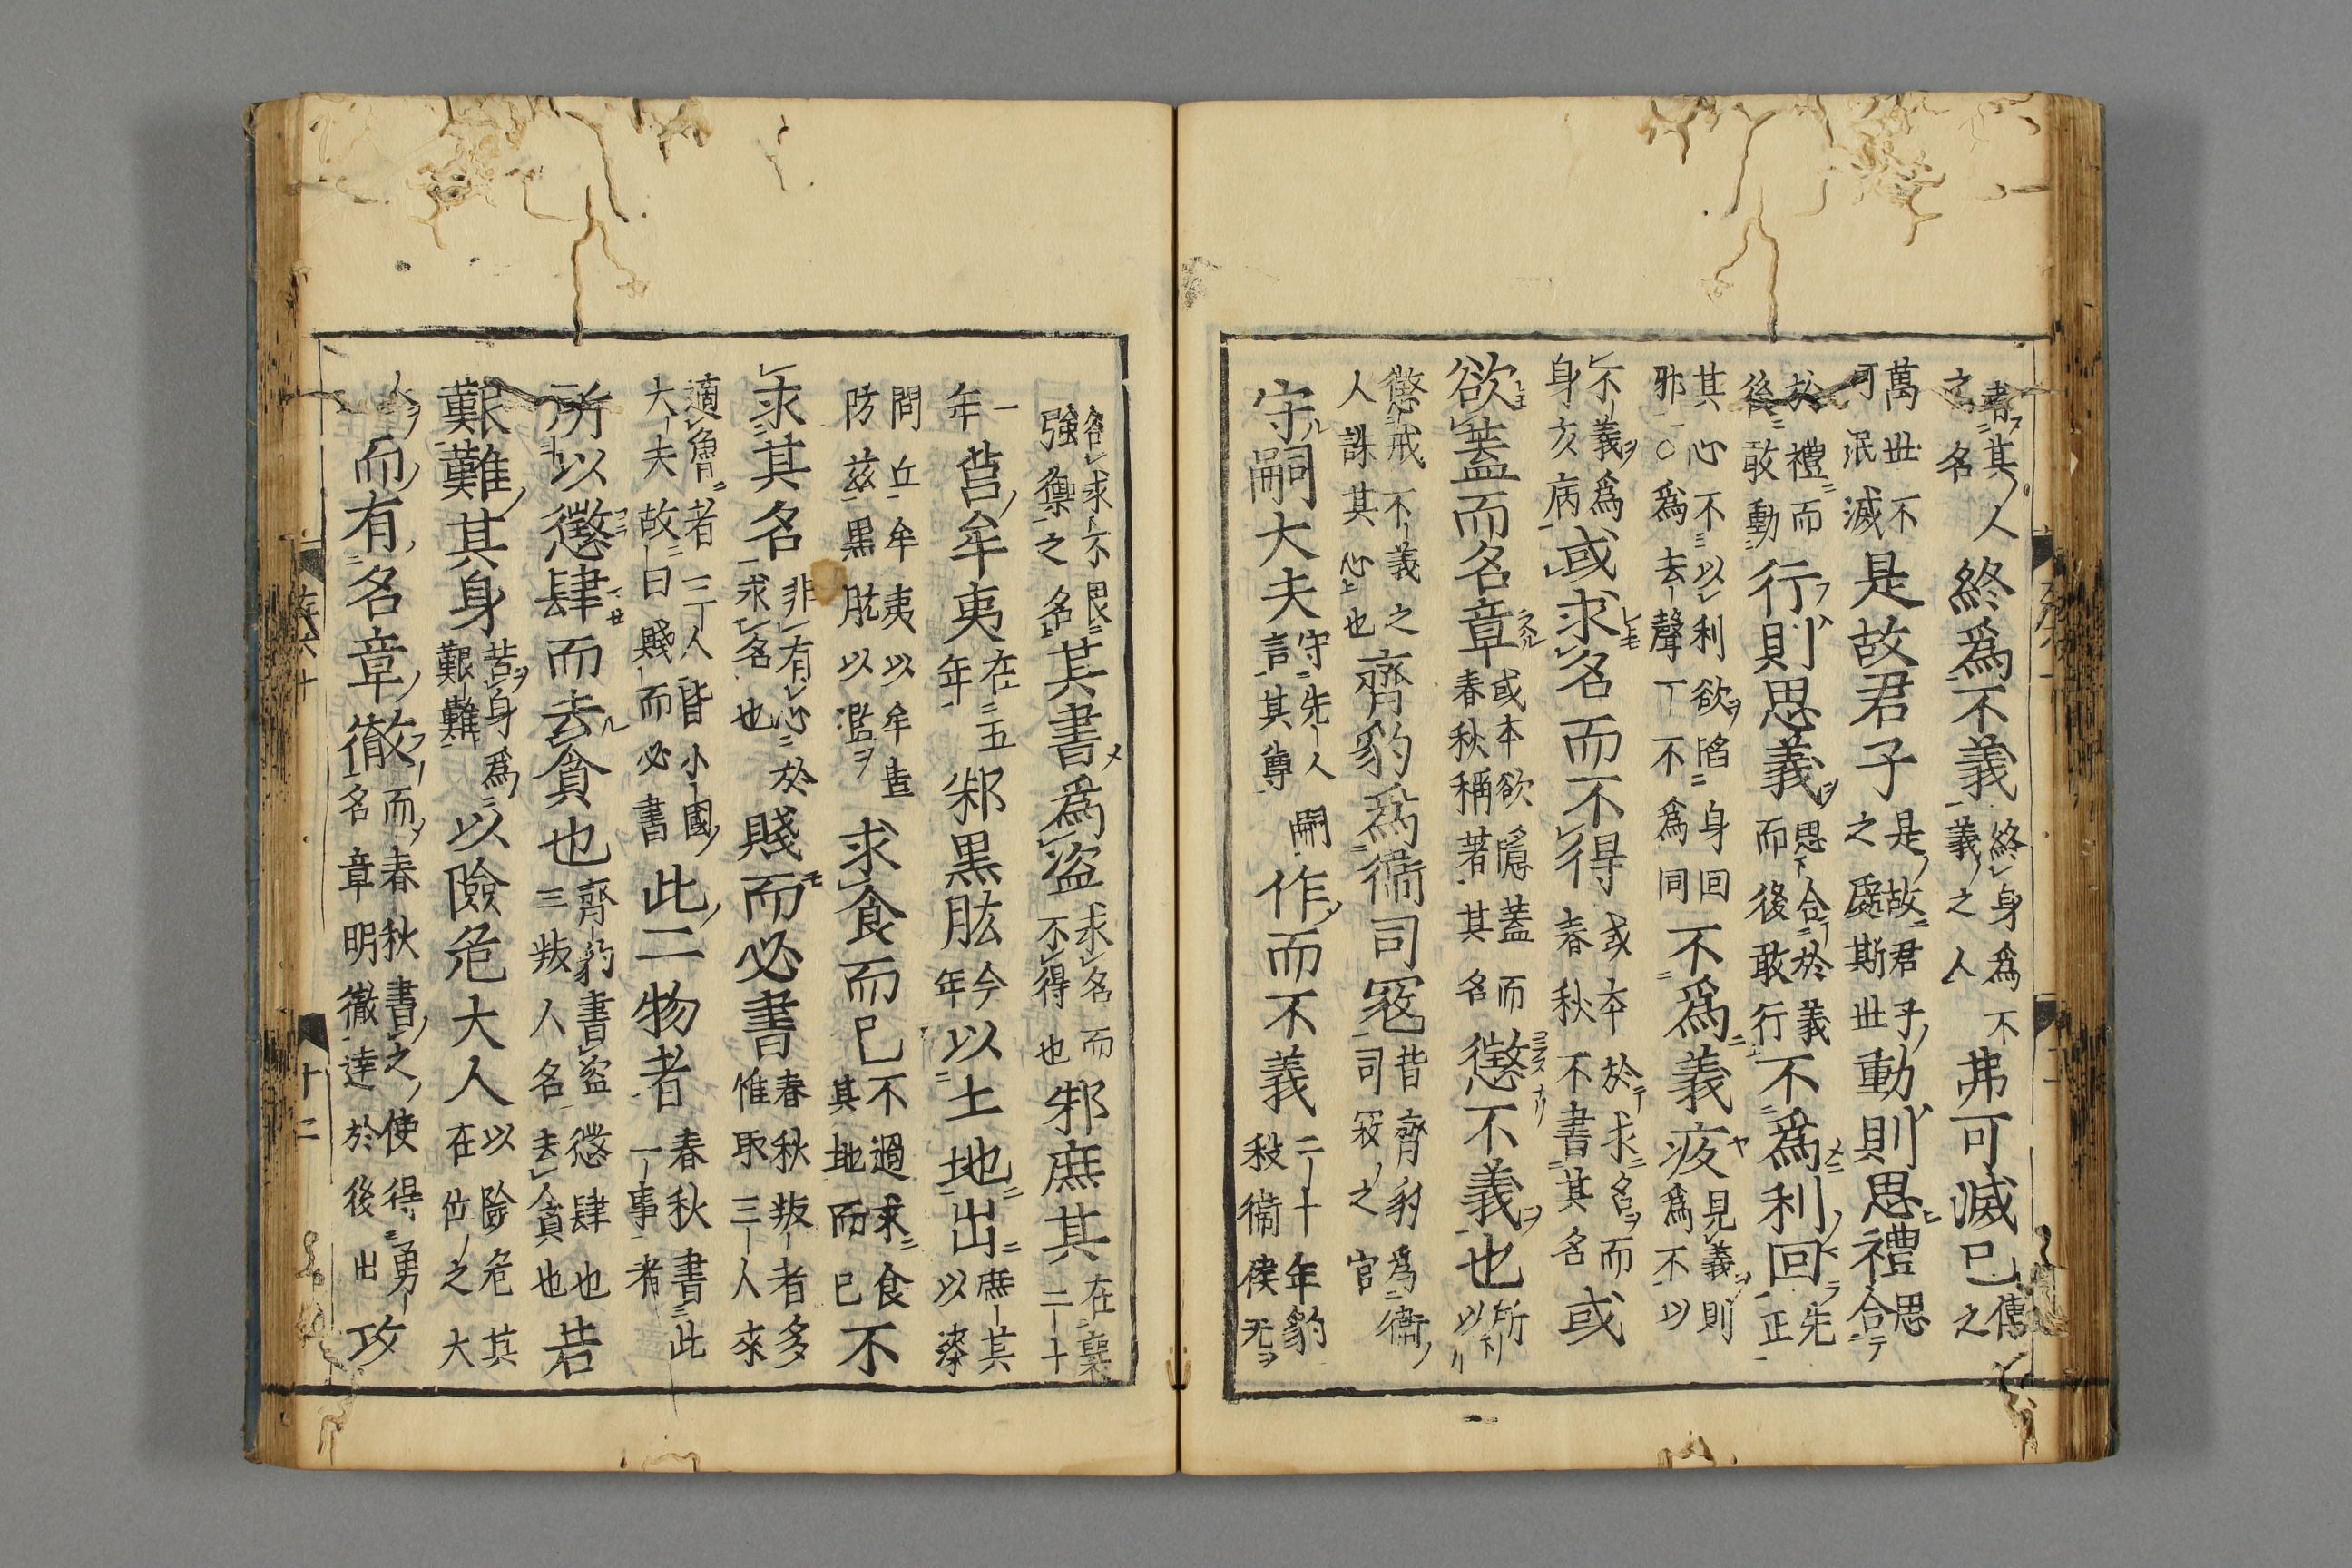 書其人之名終爲不義終身爲不義之人弗可滅已傳之
萬世不可泯滅是故君子是故君子之處斯世動則思禮思合
於禮而後敢動行則思義思合於義而後敢行不爲利回先正
其心不以利欲陷身回邪○爲去聲丅不爲同不爲義疚見義則爲不以
不義爲身亥病或求名而不得或本於求名而春秋不書其名或
欲蓋而名章或本欲隱蓋而春秋稱著其名懲不義也所以
懲戒不義之人誅其心也齊豹爲衞司寇昔齊豹爲衞司寇之官
守嗣大夫守先人言其尊嗣作而不義二十年豹殺衞侯兄
強禦之名其書爲盜求名而不得也邾庶其在襄二十
一年莒牟夷在五年邾黒肱今年以土地出庶其以漆
閭丘牟夷以牟婁防茲黒肱以濫求食而已不過求食其地而已不
求其名非有心於求名也賤而必書春秋叛者多惟取三人來
適魯者三人皆小國大夫故曰賤而必書此二物者春秋書此二事者
所以懲肆而去貪也齊豹書盜懲肆也三叛人名去貪也若
艱難其身苦身爲艱難以險危大人以險危其在位之大
人而有名章徹而春秋書之使得名章明徹達於後出勇攻
十二